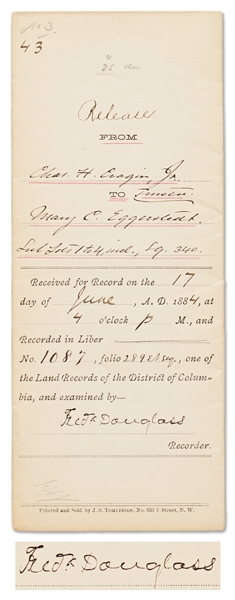 No 3.
43
Release
FROM
Chas. H. Cragin, Jr.
TO Trustee
Mary C. Eggerstedt.
Sub Lots 1 to 4, incl., Sq. 340.
Received for Record on the 17
day of June, A. D. 1884, at
4 o'clock P M., and
Recorded in Liber
No. 1087, folio 289 et seq., one of
the Land Records of the District of Colum-
bia, and examined by—
Fredk Douglass
Recorder.
Printed and Sold by J. S. Tomlinson, No. 632 F Street, N. W.
Fredk Douglass